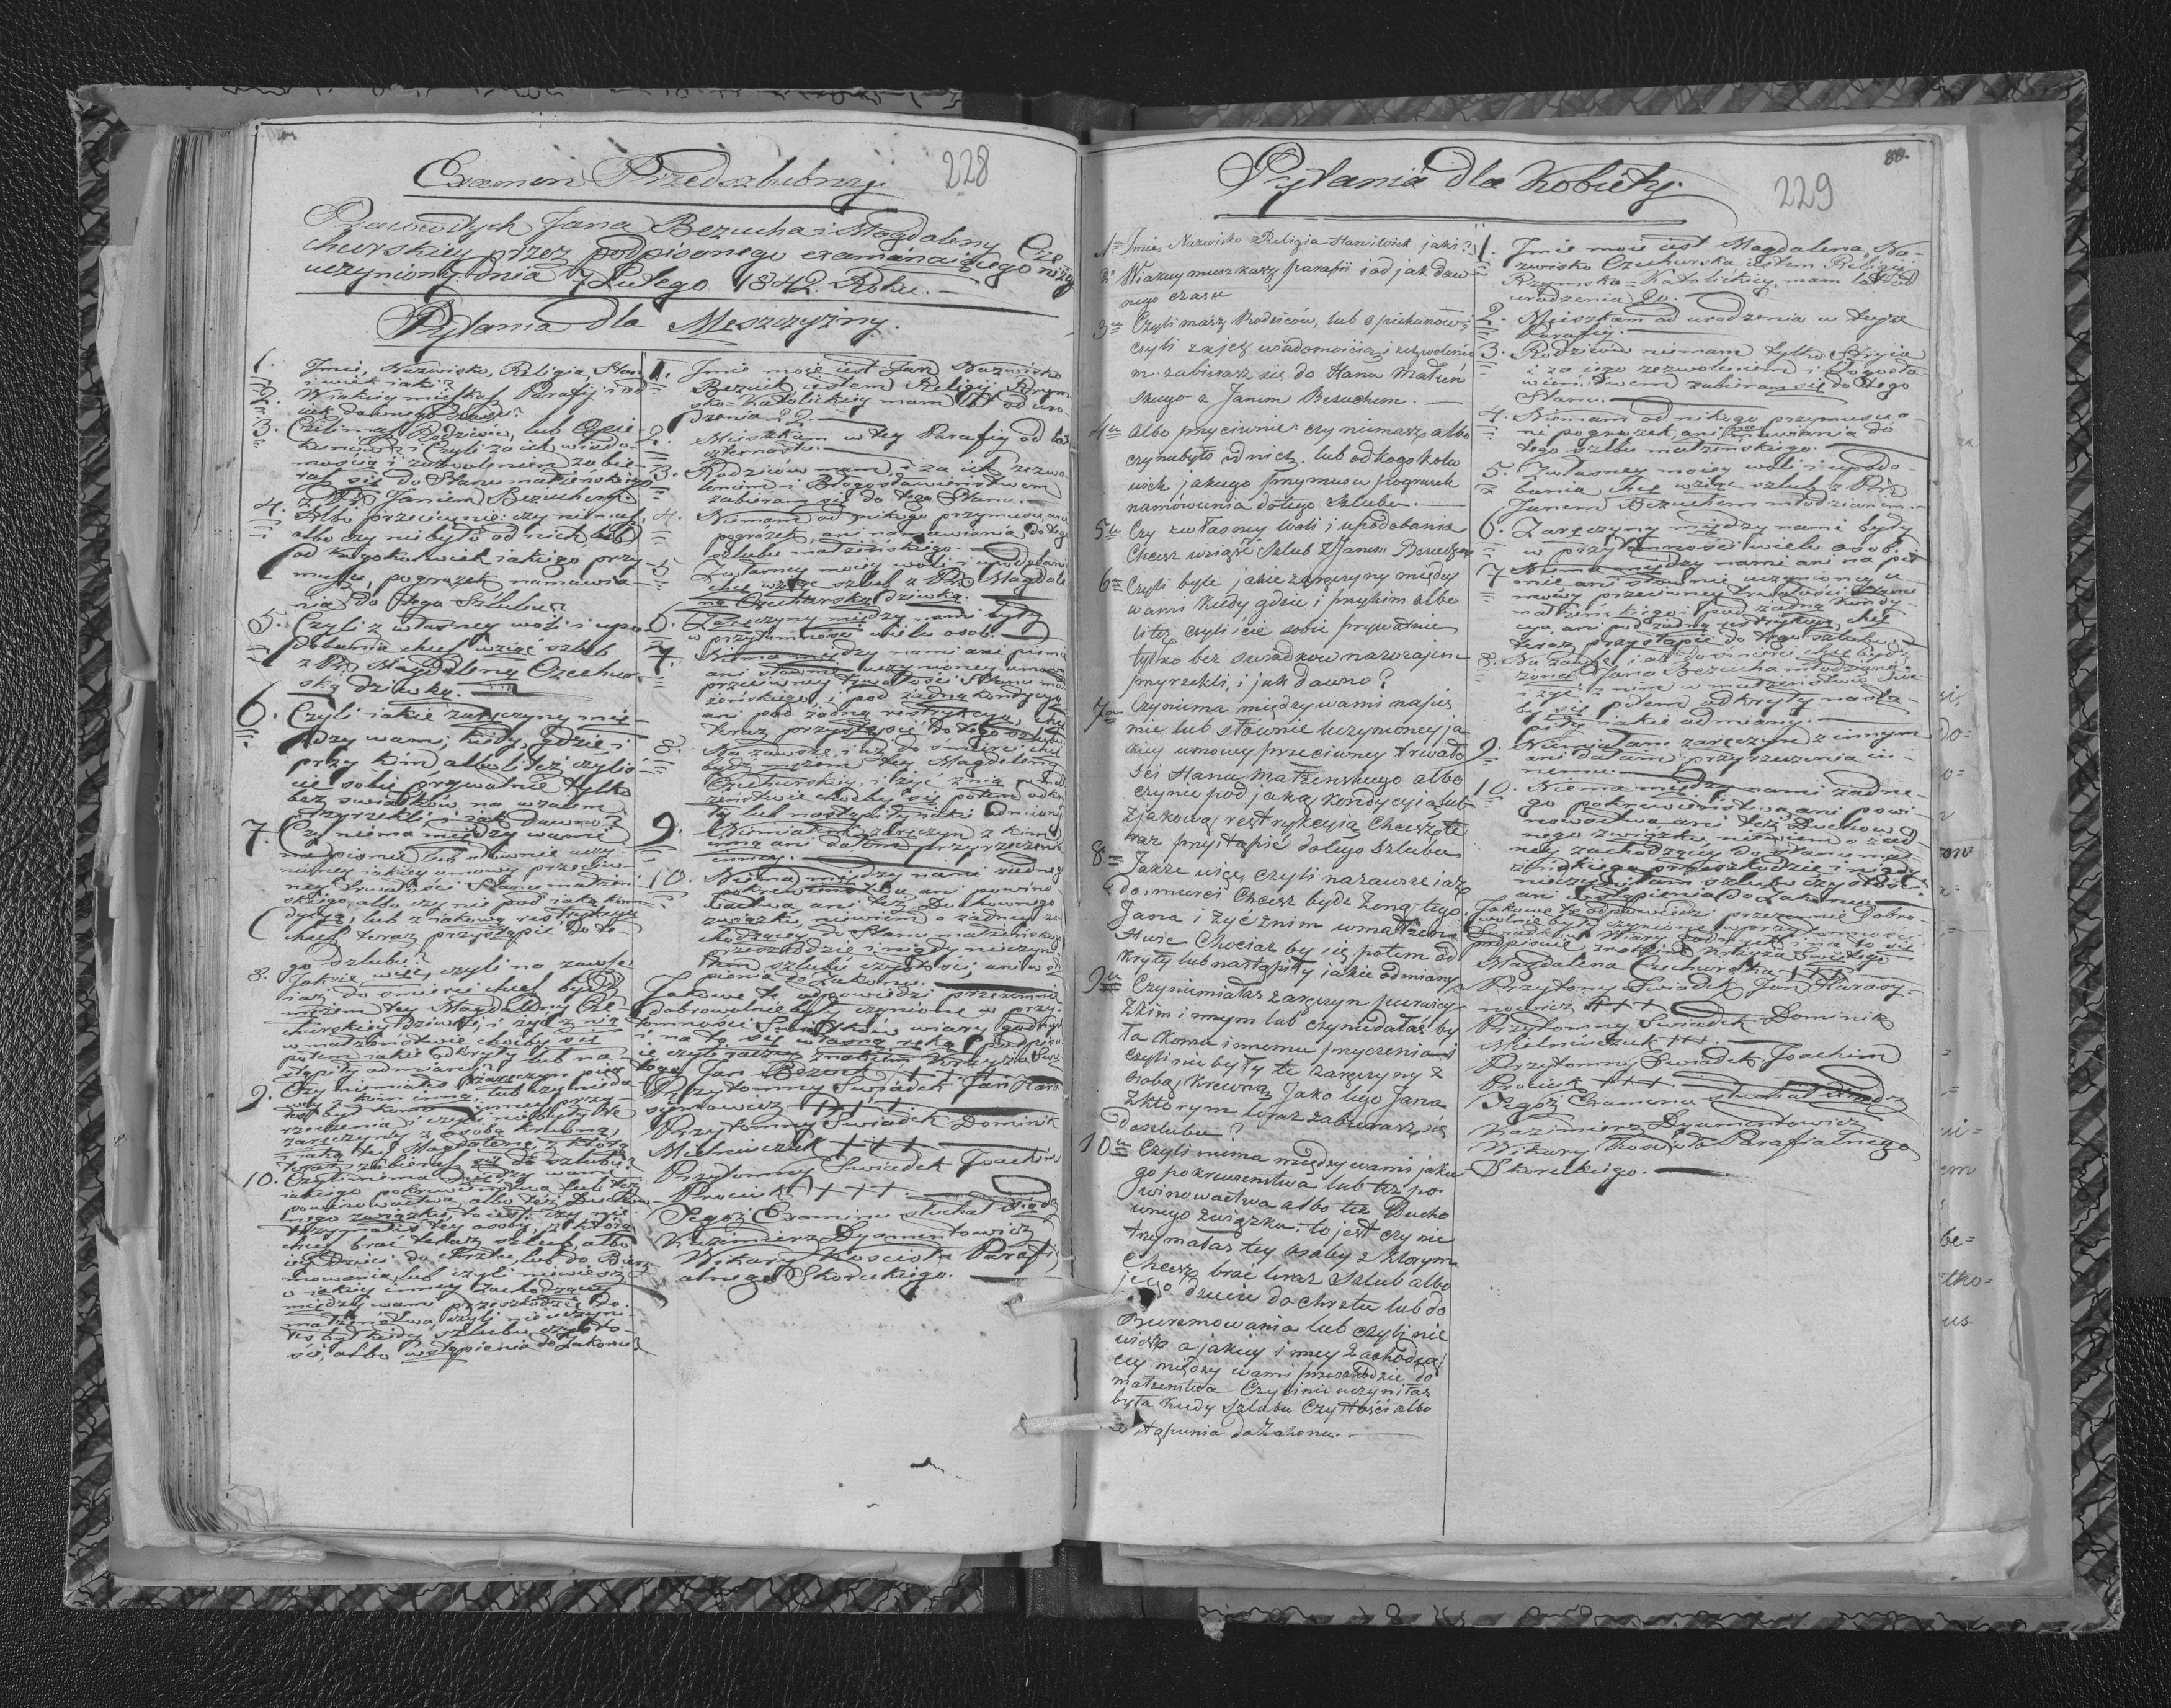 228
Examen Przedszlubny
Pracowitych Jana Bezucha i Magdaleny Cze
churskiey przez podpisanego examinaiącego niżey
uczyniony dnia 7 Lutego 1842 Roku. —
Pytania dla Meszczyzny.
1. Imie, Nazwisko, Religia Stan
i wiek iaki?
2. W iakiey mieszkasz Parafij i od
iak dawnego czasu?
3. Czeli masz Rodziców, lub Opie
kunów? i Czyli za ich wiado
mością i zezwoleniem zabie
rasz się do Stanu małżeńskiego
4. Albo przeciwnie: czy niemasz,
albo czy niebyło od nich, lub
od kogokolwiek iakiego przy
musu, pogrożek namawia
nia do tego Szlubu?
5. Czyli z własney woli i upo
dobania chcesz wziąć szlub
z Pą Magdaleną Czechur
ską dziwką. —
6. Czyli iakie zaręczyny mię
dzy wami, kiedy, gdzie i
przy kim albo li też czyliś
cie sobie prywatnie tylko
bez swiadków na wzaiem
przyrzekli i iak dawno?
7. Czy niema między wami
na pismie lub słownie uczy
nioney iakiey umowy przeciw
ney trwałości Stanu małżeń
skiego, albo czy nie pod iaką kon
dycyą, lub z iakową restrykcyą
chcesz teraz przystąpić do te
go szlubu?
8. Jakże więc, czyli na zawsze
i aż do śmierci chcesz bydź
mężem tey Magdaleny Cze
churskiey dziwki, i żyć z nią
w małżeństwie choćby się
potem iakie odkryły lub na
stąpiły odmiany?
9. Czy niemiałeś zaręczyn pier
wey z kim inną, lub czy nieda
łeś być komu inney przy
rzeczenia i czyli niebyły te
zaręczyny z osobą krewną,
iaką tey Magdaleny z którą
teraz zabierasz się do szlubu?
10. Czyli niema między wami
iakiego pokrewieństwa lub też
powinowactwa, albo też Duchow
nego związku, to iest: czy nie
trzymałeś tey osoby, z którą
chcesz brać teraz szlub, albo
iey Dzieci do chrztu, lub do Bierz
mowania, lub czyli niewiesz
o iakiey inney zachodzącey
między wami przeszkodzie do
małżeństwa, czyli nieuczyni
łeś być kiedy szlubu czysto
ści, albo wstąpienia do Zakonu?
1. Imie moie iest Jan Nazwisko
Bezuch iestem Religij Rzym
sko-Katolickiey mam lat od uro
dzenia 22. —
2. Mieszkam w tey Parafij od lat
czternastu. —
3. Rodziców mam, i za ich zezwo
leniem i Błogosławieństwem
zabieram się do tego Stanu. —
4. Niemam od nikogo przymusu, ani
pogrożek, ani namawiania do tego
szlubu małżeńskiego. —
5. Z własney moiey woli i upodobania
chcę wziąć szlub z Pą Magdale
ną Czechurską dziwką. —
6. Zaręczyny między nami były
w przytomności wielu osob. —
7. Niema między nami ani pismie
ani słownie uczynioney umowy
przeciwney trwałości Stanu mał
żeńskiego, i pod żadną kondycyą
ani pod żadną restrykcyą, chcę
teraz przystąpić do tego szlubu
8. Na zawsze, i aż do smierci chcę
bydź mężem tey Magdaleny
Czechurskiey, i żyć z nią w mał
żeństwie choćby się potem odkry
ły lub nastąpiły iakie odmiany
9. Niemiałem zaręczyn z kim
inną ani dałem przyrzeczenia
inney. —
10. Niema między nami żadnego
pokrewieństwa ani powino
wactwa ani też Duchownego
związku, niewiem o żadney za
chodzącey do Stanu małżeńskiego
przeszkodzie i nigdy nieczyni
łem szlubu czystości, ani wstą
pienia do Zakonu. —
Jakowe te odpowiedzi przezemnie
dobrowolnie były czynione w przy
tomności Swiadków wiary godnych
i na to się własną ręką podpisu
ię czyli raczey znakiem Krzyża Swię
tego Jan Bezuch +++
Przytomny Swiadek Jan Hara
symowicz +++
Przytomny Swiadek Dominik
Mielniczuk +++
Przytomny Swiadek Joachim
Prociuk +++
Tegoż Examinu słuchał Xiądz
Kazimierz Dyamentowicz
Wikary Kościoła Parafi
alnego Skoreckiego. —
80.
229
Pytania dla Kobiety.
1o Imie, Nazwisko Religia Stan i Wiek jaki?
2o W jakiey mieszkasz parafii i od jak daw
nego czasu
3o Czyli masz Rodziców, lub opiekunów i
czyli za jch wiadomością i zezwolenie
m. zabierasz się do Stanu Małżeń
skiego z Janem Bezuchem. —
4o Albo przeciwnie: czy niemasz albo
czy niebyło od nich, lub od kogo kolw
wiek jakiego przymusu pogrużek
namówienia do tego szlubu. —
5o Czy z własney woli i upodobania
Chcesz wziąść szlub z Janem Bezuchem
6o Czyli były jakie zaręczyny między
wami kiedy gdzie i przykim albo
liteż czyliście sobie prywatnie
tylko bez swiadków nawzajem
przyrzekli, i jak dawno?
7o Czy niema między wami na piś
mie lub słownie uczynioney ja
kiey umowy przeciwney trwało
ści stanu małżenskiego albo
czy nie pod jaką kondycyią lub
z jakową restrykcyią Chcesz te
raz przystąpić do tego szlubu
8o Jakże więc, czyli nazawsze i aż
do smierci Chcesz bydź Żoną tego
Jana i żyć żnim w małżen
stwie Chociaż by się potem od
kryły lub nastąpiły jakie odmiany?
9o Czy niemiałaś zaręczyn pierwiey
z kim innym lub czy niedałaś by
ła komu innemu przyczenia i
czyli nie były te zaręczyny z
osobą krewną, Jako tego Jana
z którym teraz zabierasz się
do szlubu?
10o Czyli niema między wami jakie
go pokrewienstwa lub też po
winowactwa albo też Ducho
wnego związku; to jest czy nie
trzymałaś tey osoby z którym
Chcesz brać teraz Szlub albo
jego dzieci do chrztu lub do
Bierzmowania lub czyli nie
wiesz o jakiey inney zachodzą
cey między wami przeszkodzie do
małzenstwa Czyli nie uczyniłaś
była kiedy szlubu Czystości albo
wstąpienia do Zakonu. —
1. Imie moie iest Magdalena, Na-
zwisko Czechurska iestem Religij
Rzymsko-Katolickiey, mam lat od
urodzenia 20. —
2. Mieszkam od urodzenia w teyże
Parafij. —
3. Rodziców niemam tylko Stryia
i za iego zezwoleniem i błogosła
wieństwem zabieram się do tego
Stanu. —
4. Niemam od nikogo przymusu a-
ni pogrożek, ani namawiania do
tego szlubu małżeńskiego. —
5. Z własney moiey woli i upodo-
bania chcę wziąć szlub z Pą
Janem Bezuchem młodzianem. —
6. Zaręczyny między nami były
w przytomności wielu osob. —
7. Niema między nami ani na piś
mie ani słownie uczynioney u
mowy przeciwney trwałości Stanu
małżeńskiego i pod żadną kondy-
cyą ani pod żadną restrykcyą, chcę
teraz przystąpić do tego szlubu. —
8. Na zawsze, i aż do śmierci chcę bydź
żoną Jana Bezucha młodziana
i żyć z nim w małżeństwie choć
by się potem odkryły nastą-
piły iakie odmiany. —
9. Niemiałam zaręczyn z innym
ani dałam przyrzeczenia in-
nemu. —
10. Niema między nami żadne-
go pokrewieństwa, ani powi-
nowactwa ani też Duchow
nego związku niewiem o żad-
ney zachodzącey do stanu mał
żeńskiego przeszkodzie i nigdy
nieczyniłam szlubu czystości
ani wstąpienia do Zakonu. —
Jakowe te odpowiedzi przezemnie dobro-
wolnie były czynione w przytomności
Swiadków Wiary godnych i na to się
podpisuie znakiem Krzyża Swiętego
Magdalena Czechurska +++
Przytomny Swiadek Jan Harasy-
mowicz +++
Przytomny Swiadek Dominik
Mielniczuk +++. —
Przytomny Swiadek Joachim
Prociuk +++. —
Tegoż Examenu słuchał Xiądz
Kazimierz Dyamentowicz
Wikary Kościoła Parafialnego
Skoreckiego. —